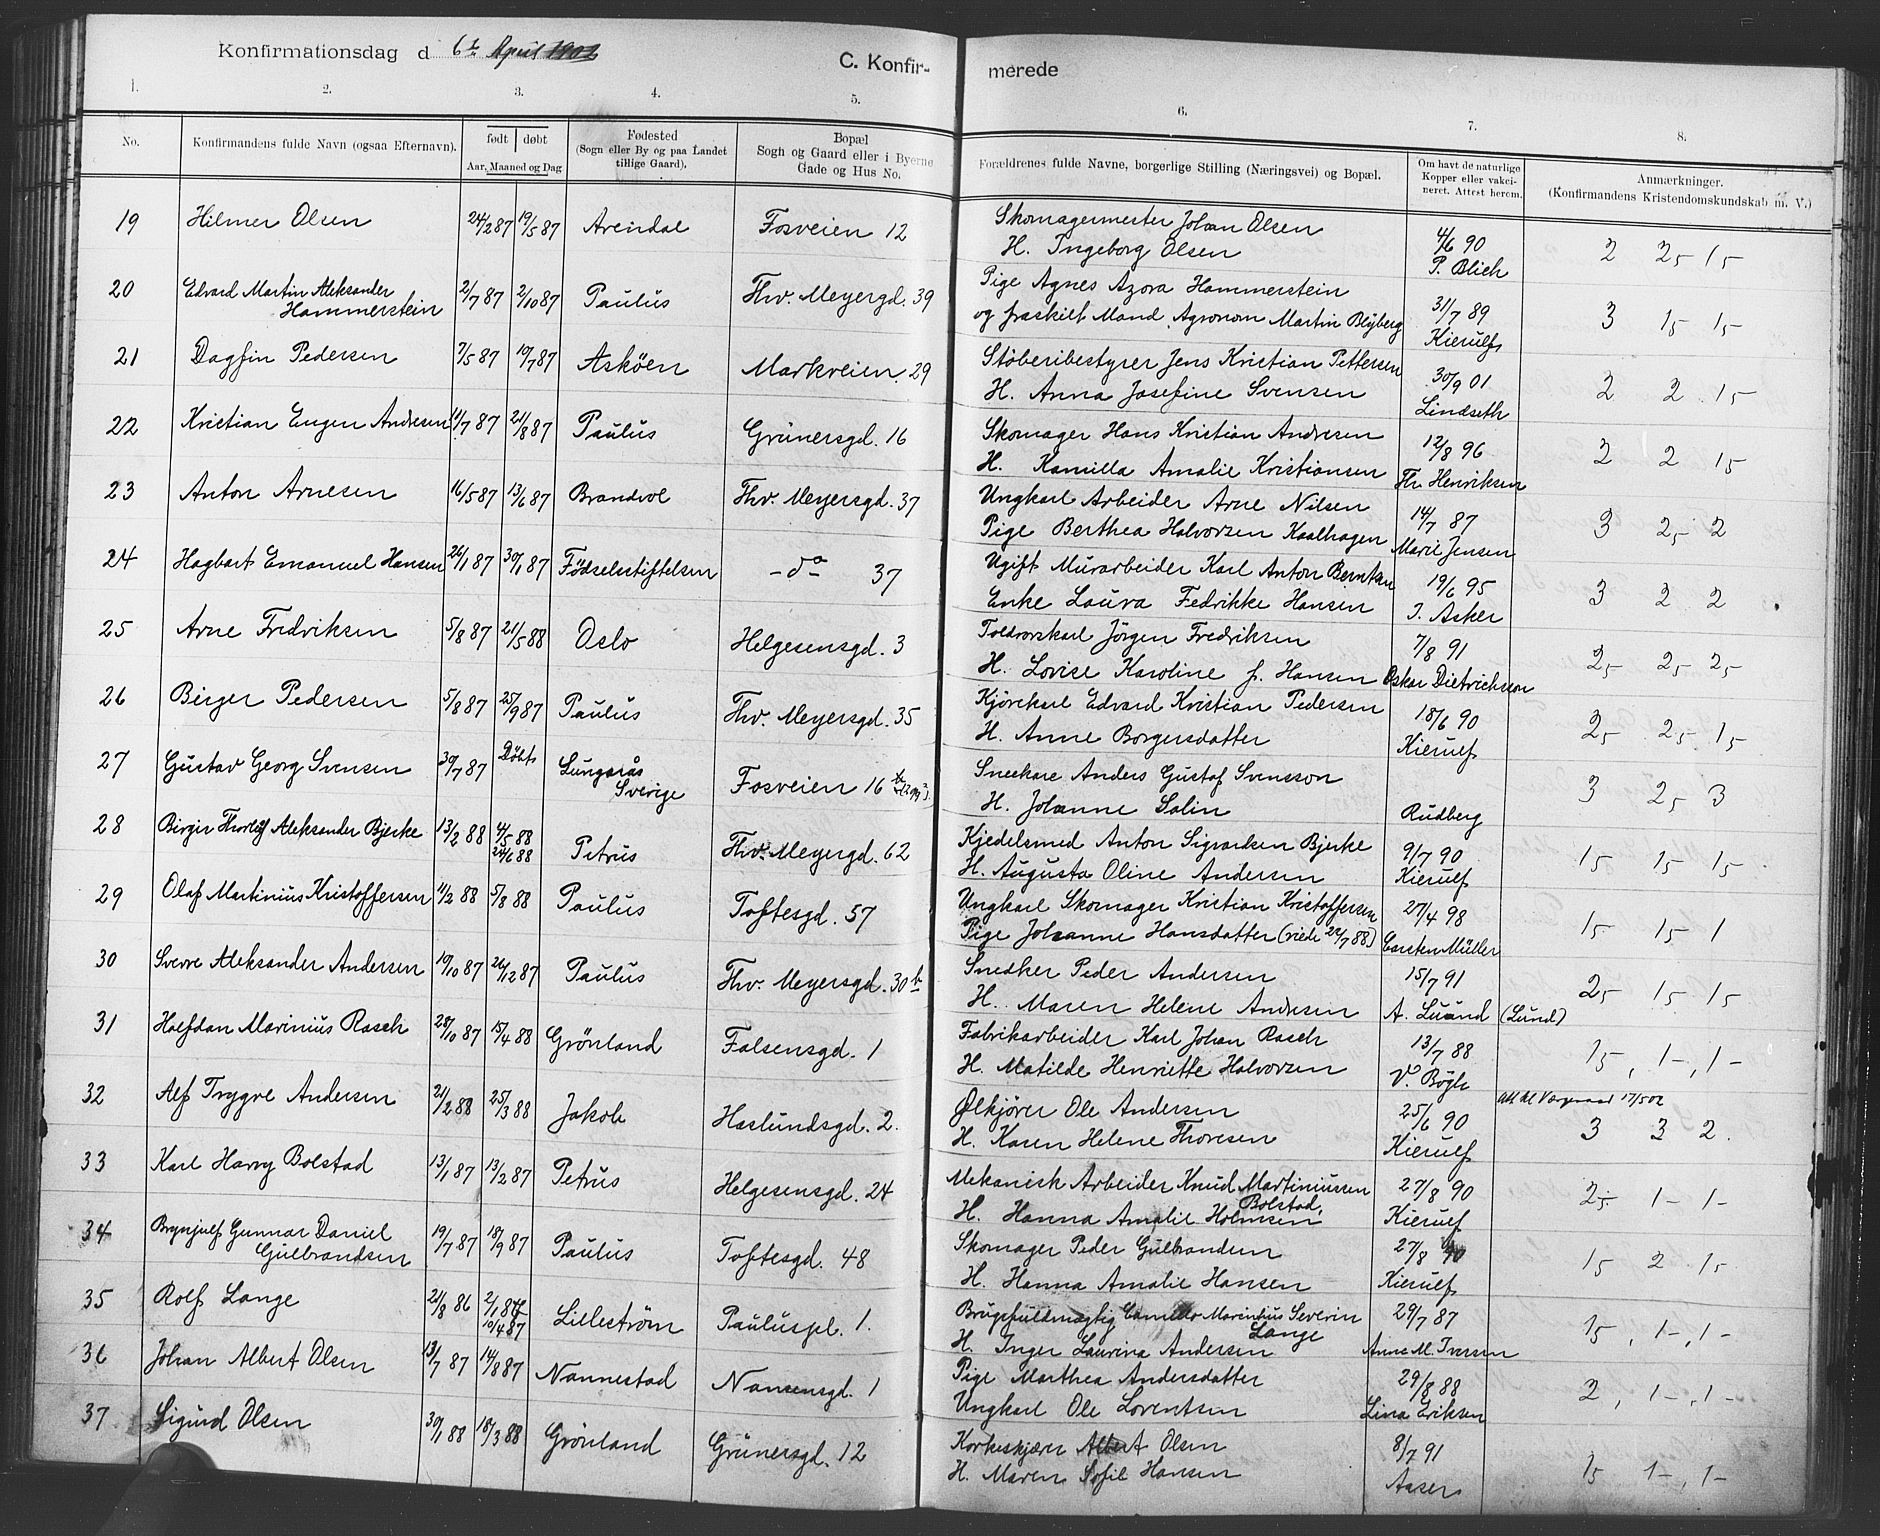 Konfirmationsdag d. 6te April 1902
C. Konfir- merede
1. 2. 3. 4. 5. 6. 7. 8.
No.
Konfirmandens fulde Navn (ogsaa Efternavn).
født døbt
Aar, Maaned og Dag
Fødested
(Sogn eller By og paa Landet
tillige Gaard).
Bopæl
Sogn og Gaard eller i Byerne
Gade og Hus No.
Forældrenes fulde Navne, borgerlige Stilling (Næringsvei) og Bopæl.
Om havt de naturlige
Kopper eller vakci-
neret. Attest herom.
Anmærkninger.
(Konfirmandens Kristendomskundskab m. V.)
19 Hilmer Olsen 24/2 87 19/5 87 Arendal Fosveien 12 Skomagermester Johan Olsen
H. Ingeborg Olsen 4/6 90 P. Blich 2 25 15
20 Edvard Martin Aleksander
Hammerstein 2/7 87 2/10 87 Paulus Thv. Meyergd. 39 Pige Agnes Azora Hammerstein
og fraskilt Mand, Agronom Martin Blyberg 31/7 89 Kierulf 3 15 15
21 Dagfin Pedersen 7/5 87 19/7 87 Asköen Markveien. 29 Støberibestyrer Jens Kristian Pettersen
H. Anna Josefine Svensen 30/9 01 Lindseth 2 2 15
22 Kristian Eugen Andresen 11/7 87 21/8 87 Paulus Grünersgd. 16 Skomager Hans Kristian Andresen
H. Kamilla Amalie Kristiansen 12/8 96 Fr. Henriksen 2 2 15
23 Anton Arnesen 16/5 87 13/6 87 Brandvol Thv. Meyersgd. 37 Ungkarl Arbeider Arne Nilsen
Pige Berthea Halvorsen Kaalhagen 14/7 87 Marie Jensen 3 25 2
24 Hagbart Emanuel Hansen 26/1 87 30/1 87 Födselsstiftelsen - do - 37 Ugift Murarbeider Karl Anton Berntsen
Enke Laura Fedrikke Hansen 19/6 95 J. Asker 3 2 2
25 Arne Fredriksen 5/8 87 21/5 88 Oslo Helgesensgd. 3 Toldvorskarl Jörgen Fredriksen
H. Lovise Karoline f. Hansen 7/8 91 Oskar Dietrichson 25 25 25
26 Birger Pedersen 5/8 87 25/9 87 Paulus Thv. Meyersgd. 35 Kjörekarl Edvard Kristian Pedersen
H. Anne Borgersdatter 18/6 90 Kierulf 25 25 15
27 Gustav Georg Svensen 30/7 87 Döbt
Sverige Fosveien 16 Snedkare Anders Gustaf Svensson
H. Johanne Salin Rudberg 3 25 3
28 Birger Thorleif Aleksander Bjerke 13/2 88 4/5 88
24/6 88 Petrus Thv. Meyergd. 62 Kjedelsmed Anton Sigvardsen Bjerke
H. Augusta Oline Andersen 9/7 90 Kierulf 15 15 15
29 Olaf Martinius Kristoffersen 11/2 88 5/8 88 Paulus Toftesgd. 57 Ungkarl Skomager Kristian Kristoffersen
Pige Johanne Hansdatter (viede 22/7 88) 27/4 98 Carsten Müller 15 15 1
30 Sverre Aleksander Andersen 19/10 87 26/12 87 Paulus Thv. Meyersgd. 30 b Snedker Peder Andersen
H. Maren Helene Andresen 15/7 91 A. Luand (Lund) 25 15 15
31 Halfdan Marinius Rasch 28/10 87 15/4 88 Grönland Falsensgd. 1 Fabrikarbeider Karl Johan Rasch
H. Matilde Henriette Halvorsen 13/7 88 V. Bögh 15, 1-, 1-
32 Alf Trygve Andersen 21/2 88 25/3 88 Jakob Haslundsgd. 2. Ølkjører Ole Andersen
H. Karen Helene Thoresen 25/6 90 Kierulf 3 3 2.
33 Karl Harry Bolstad 13/1 87 13/2 87 Petrus Helgesensgd. 24 Mekanisk Arbeider Knud Martiniussen
Bolstad,
H. Hanna Amalie Holmsen 27/8 90 Kierulf 25 1- 1-
34 Brynjulf Gunnar Daniel
Gulbrandsen 19/7 87 18/9 87 Paulus Toftesgd. 48 Skomager Peder Gulbrandsen
H. Hanna Amalie Hansen 27/8 90 Kierulf 15 2 15
35 Rolf Lange 21/8 86 2/1 87
10/4 87 Lilleström Pauluspl. 1. Brugsfuldmægtig Marinius Severin
Lange
H. Inger Laurina Andersen 29/7 87 Anne M. Iversen 15, 1-, 1-
36 Johan Albert Olsen 13/7 87 14/8 87 Nannestad Nansensgd. 1 Pige Marthea Andersdatter
Ungkarl Ole Lorentsen 29/8 88 Lina Eriksen 2, 1-, 1-
37 Sigurd Olsen 30/1 88 18/3 88 Grönland Grünersgd. 12 Korkeskjærer Albert Olsen
H. Maren Sofie Hansen 8/7 91 Aasen 15 1-, 1-